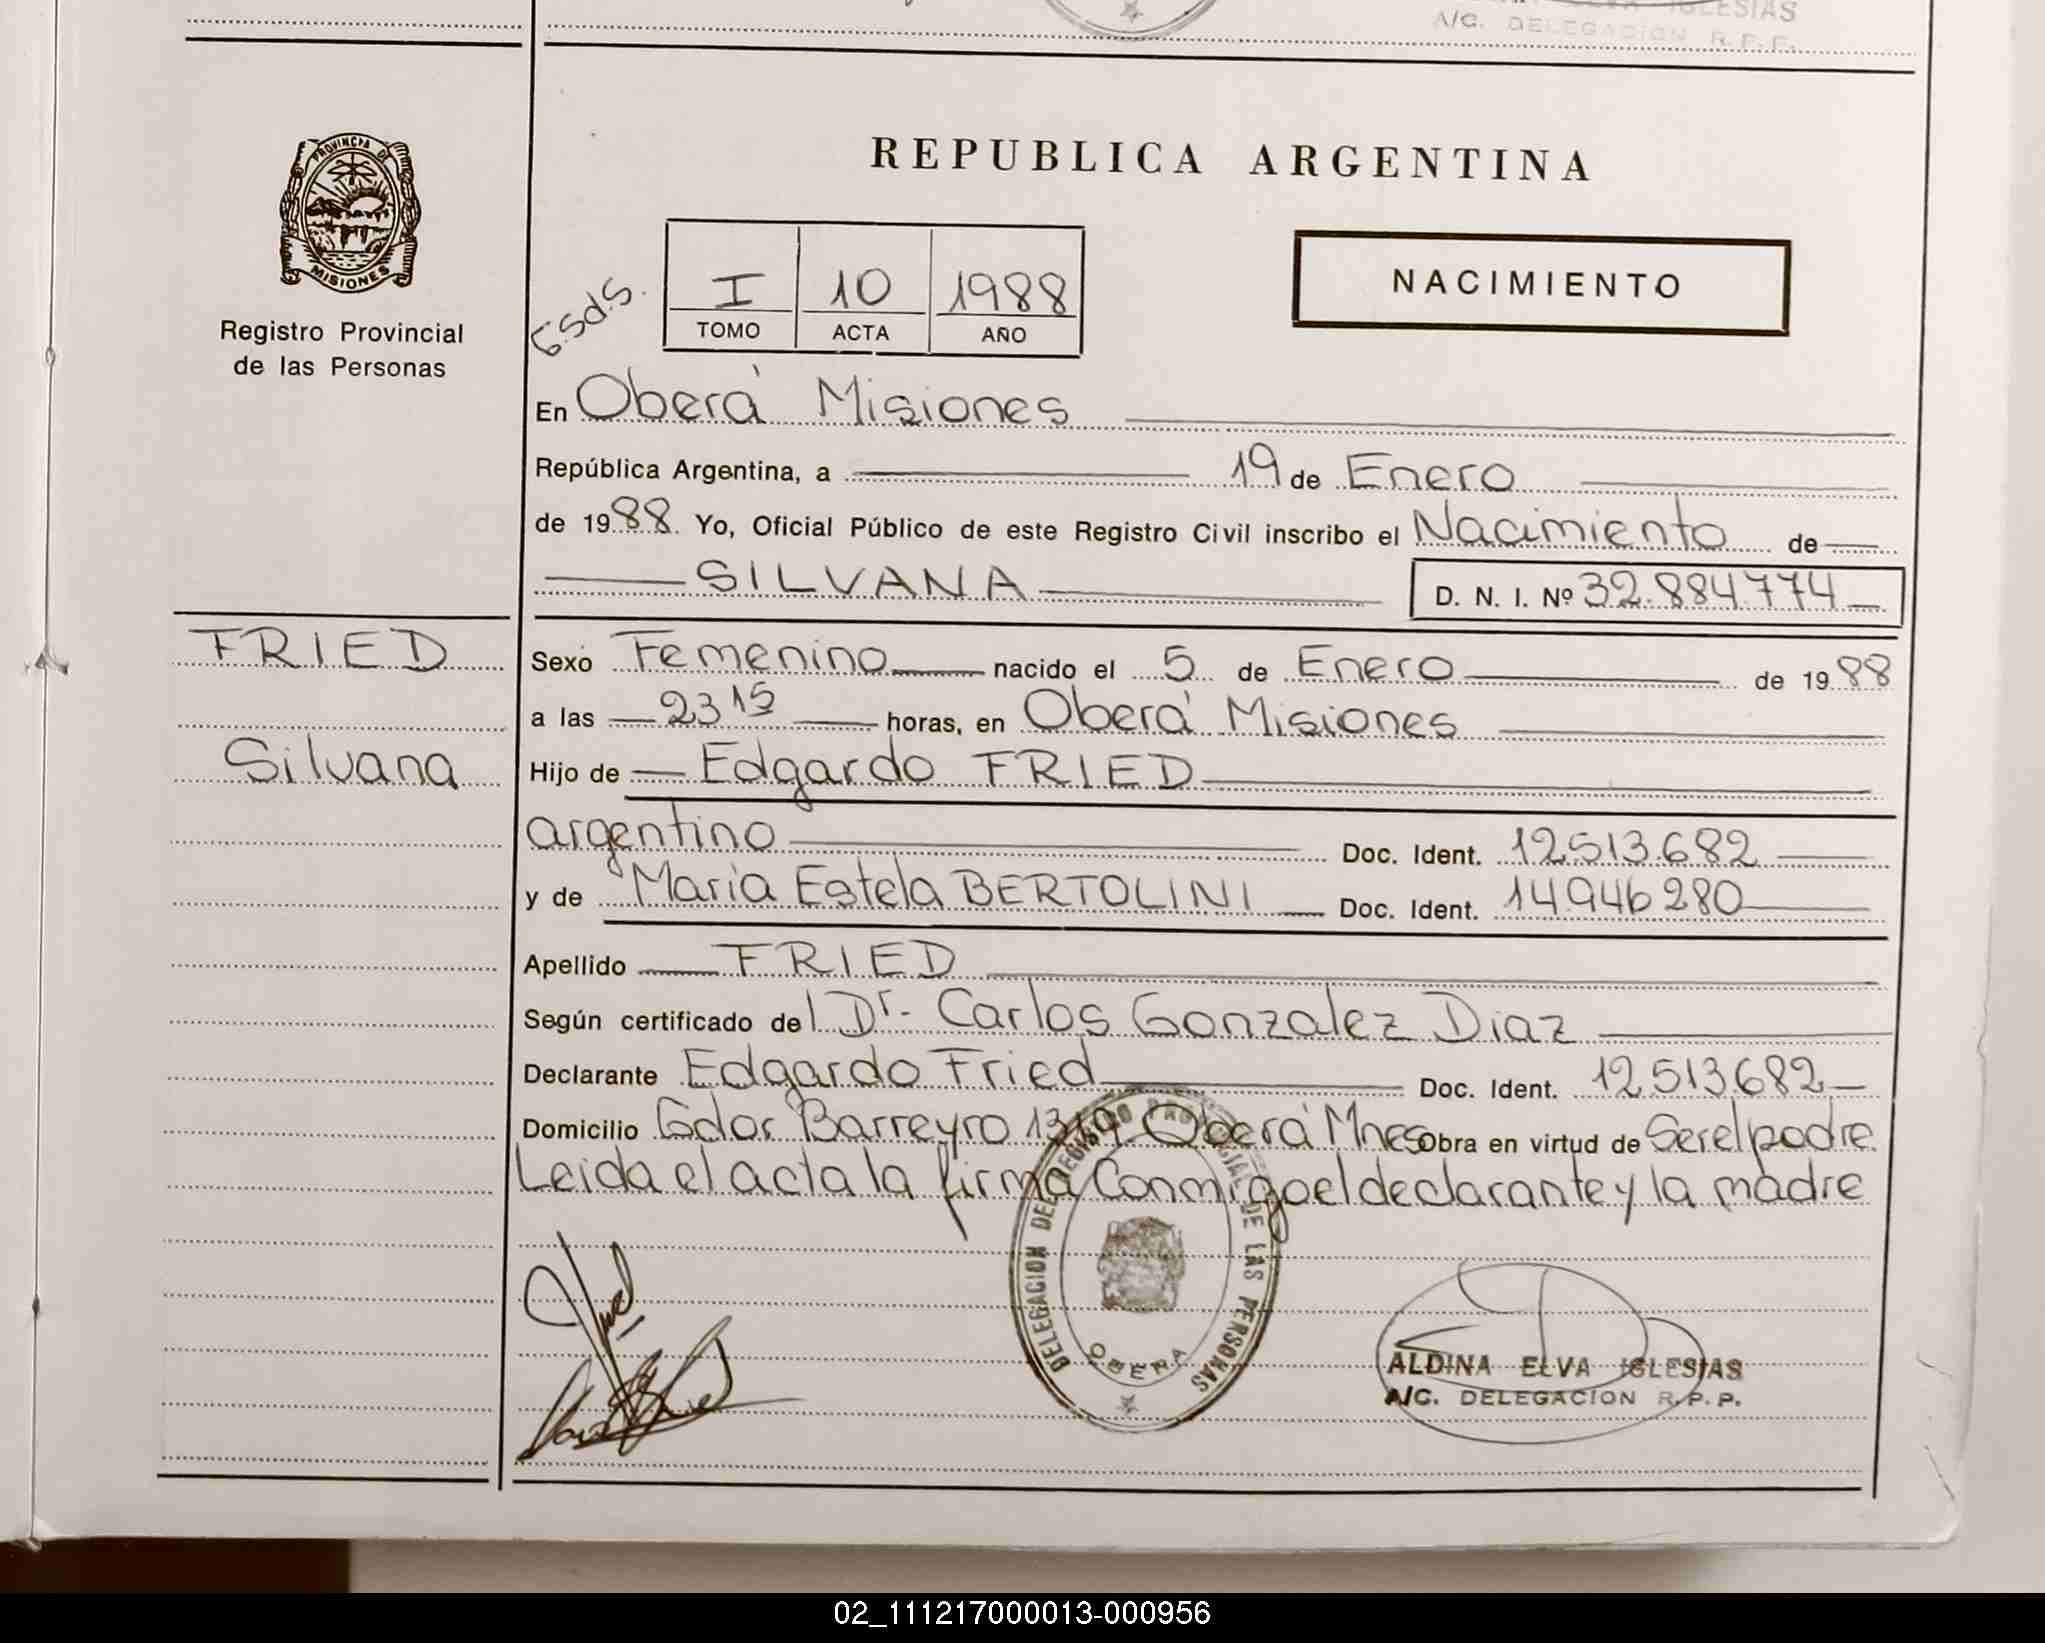 IGLESIAS
A/C. DELEGACION R.P.P.
PROVINCIA DE
MISIONES
Registro Provincial
de las Personas
REPUBLICA ARGENTINA
I 10 1988
TOMO ACTA AÑO
NACIMIENTO
En Oberá Misiones
República Argentina, a 19 de Enero
de 1988 Yo, Oficial Público de este Registro Civil inscribo el Nacimiento de
SILVANA D. N. I. Nº 32.884.774
FRIED
Silvana
Sexo Femenino nacido el 5 de Enero de 1988
a las 23 15 horas, en Oberá Misiones
Hijo de Edgardo FRIED
argentino Doc. Ident. 12.513.682
y de Maria Estela BERTOLINI Doc. Ident. 14.946.280
Apellido FRIED
Según certificado del Dr. Carlos Gonzalez Diaz
Declarante Edgardo Fried Doc. Ident. 12.513.682
Domicilio Gdor Barreyro 1319 Oberá Mnes Obra en virtud de Ser el padre
Leida el acta la firma Conmigo el declarante y la madre
DELEGACION DEL REGISTRO PROVINCIAL DE LAS PERSONAS
OBERA
ALDINA ELVA IGLESIAS
A/C. DELEGACION R.P.P.
02_111217000013-000956